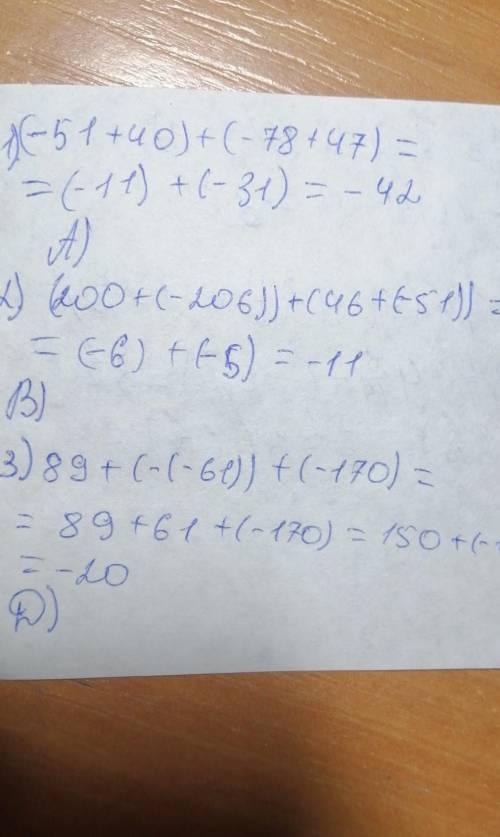 1)(-51+40)+(-78+47)=
=(-11)+(-31)=-42
A)
2) (200+(-206))+(46+(-51))=
=(-6)+(-5)=-11
B)
3) 89+(-(-61))+(-170)=
= 89+61+(-170)=150+(-1
=-20
D)